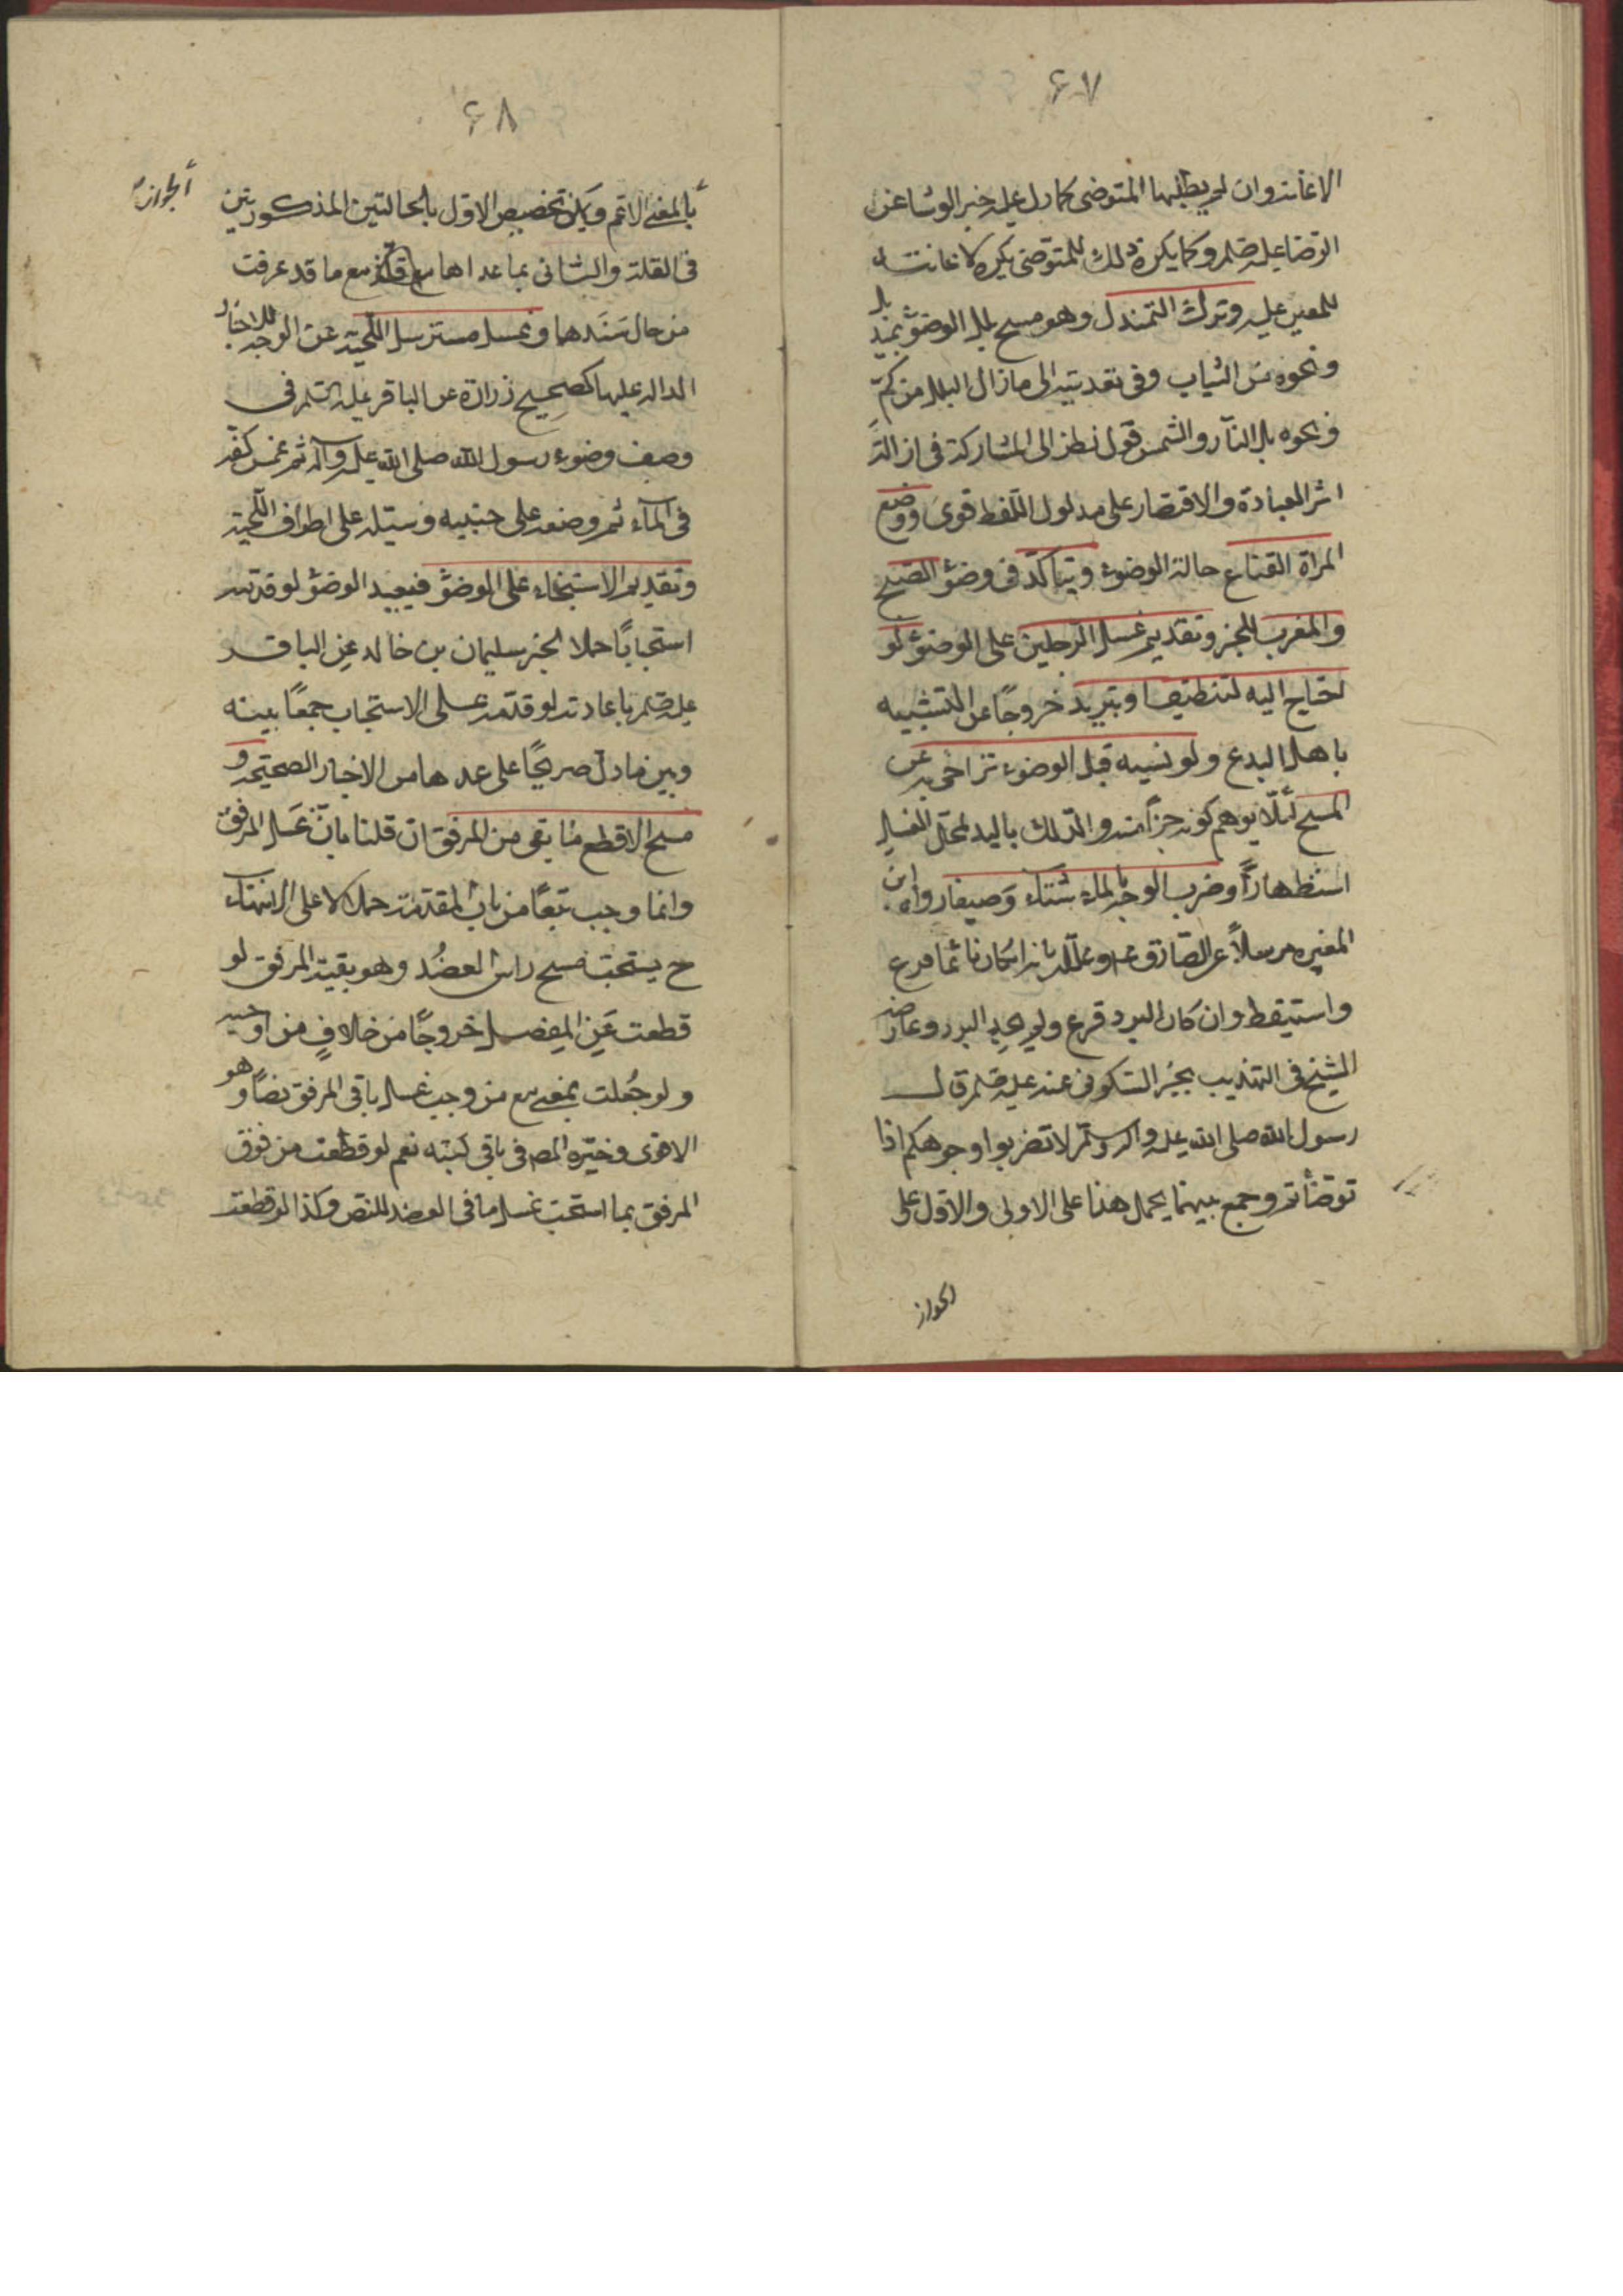 ۶۷
الاعانة وان لم يطلبها المتوضى كما دل عليه خبر الوشا عن
الرضا عليه وكما يكره ذلك للمتوضى يكره الاعانة
للمعين عليه وترك التمندل وهو مسح بلل الوضوء بمنديل
ونحوه من الثياب وفى تعديته الى ما زال البلل من كم
ونحوه بل النار والشمس قول نظر الى المشاركة فى ازالة
اثر العبادة والاقتصار على مدلول اللفظ قوى ووضع
المراة القناع حالة الوضوء ويتاكد فى وضوء الصبح
والمغرب للخبر وتقديم غسل الرجلين على الوضوء لو
احتاج اليه لتنظيف او تبريد خروجًا عن التشبيه
باهل البدع ولو نسيه قبل الوضوء تراخى به عن
المسح لئلا يوهم كونه جزأ منه والدلك باليد لمحل الغسل
استظهارًا وضرب الوجه بالماء شتاء وصيفا رواه ابن
المغيره مرسلاً عن الصادق ع وعلله بانه ان كان ناعسًا فزع
واستيقظ وان كان البرد فزع ولم يجد البرد وعارضه
الشيخ فى التهذيب بخبر السكونى عنه عليه قال
رسول الله صلى الله عليه واله وسلم لا تضربوا وجوهكم اذا
توضأتم وجمع بينهما بحمل هذا على الاولى والاول على
الجواز
۶۸
الجواز
بالمعنى الاعم ويمكن تخصيص الاول بالحالتين المذكورتين
فى القلة والثانى بما عداهما مع ما قد عرفت
من حال سندهما وغسل مسترسل اللحية عن الوجه للاخبار
الدالة عليها كصحيح زرارة عن الباقر عليه السلم فى
وصف وضوء رسول الله صلى الله عليه وآله ثم غمس كفه
فى الماء ثم وضعه على جنبيه وسيله على اطراف اللحية
وتقديم الاستنجاء على الوضوء فيعيد الوضوء لو قدمه
استحبابًا حملا لخبر سليمان بن خالد عن الباقر
عليه باعادته لو قدمه على الاستحباب جمعًا بينه
وبين ما دل صريحًا على عدمها من الاخبار الصحيحة و
مسح الاقطع ما بقى من المرفق ان قلنا بان غسل المرفق
وانما وجب تبعًا من باب المقدمة حملا لالى على الانتهاء
ح يستحب مسح راس العضد وهو بقية المرفق لو
قطعت عن المفصل خروجًا من خلاف من اوجبه
ولو جعلت بمعنى مع من وجب غسل باقى المرفق نصًا وهو
الاقوى وخيره المصـ فى باقى كتبه نعم لو قطعت من فوق
المرفق بما استحب غسل ما فى العضد للنص وكذا لو قطعت